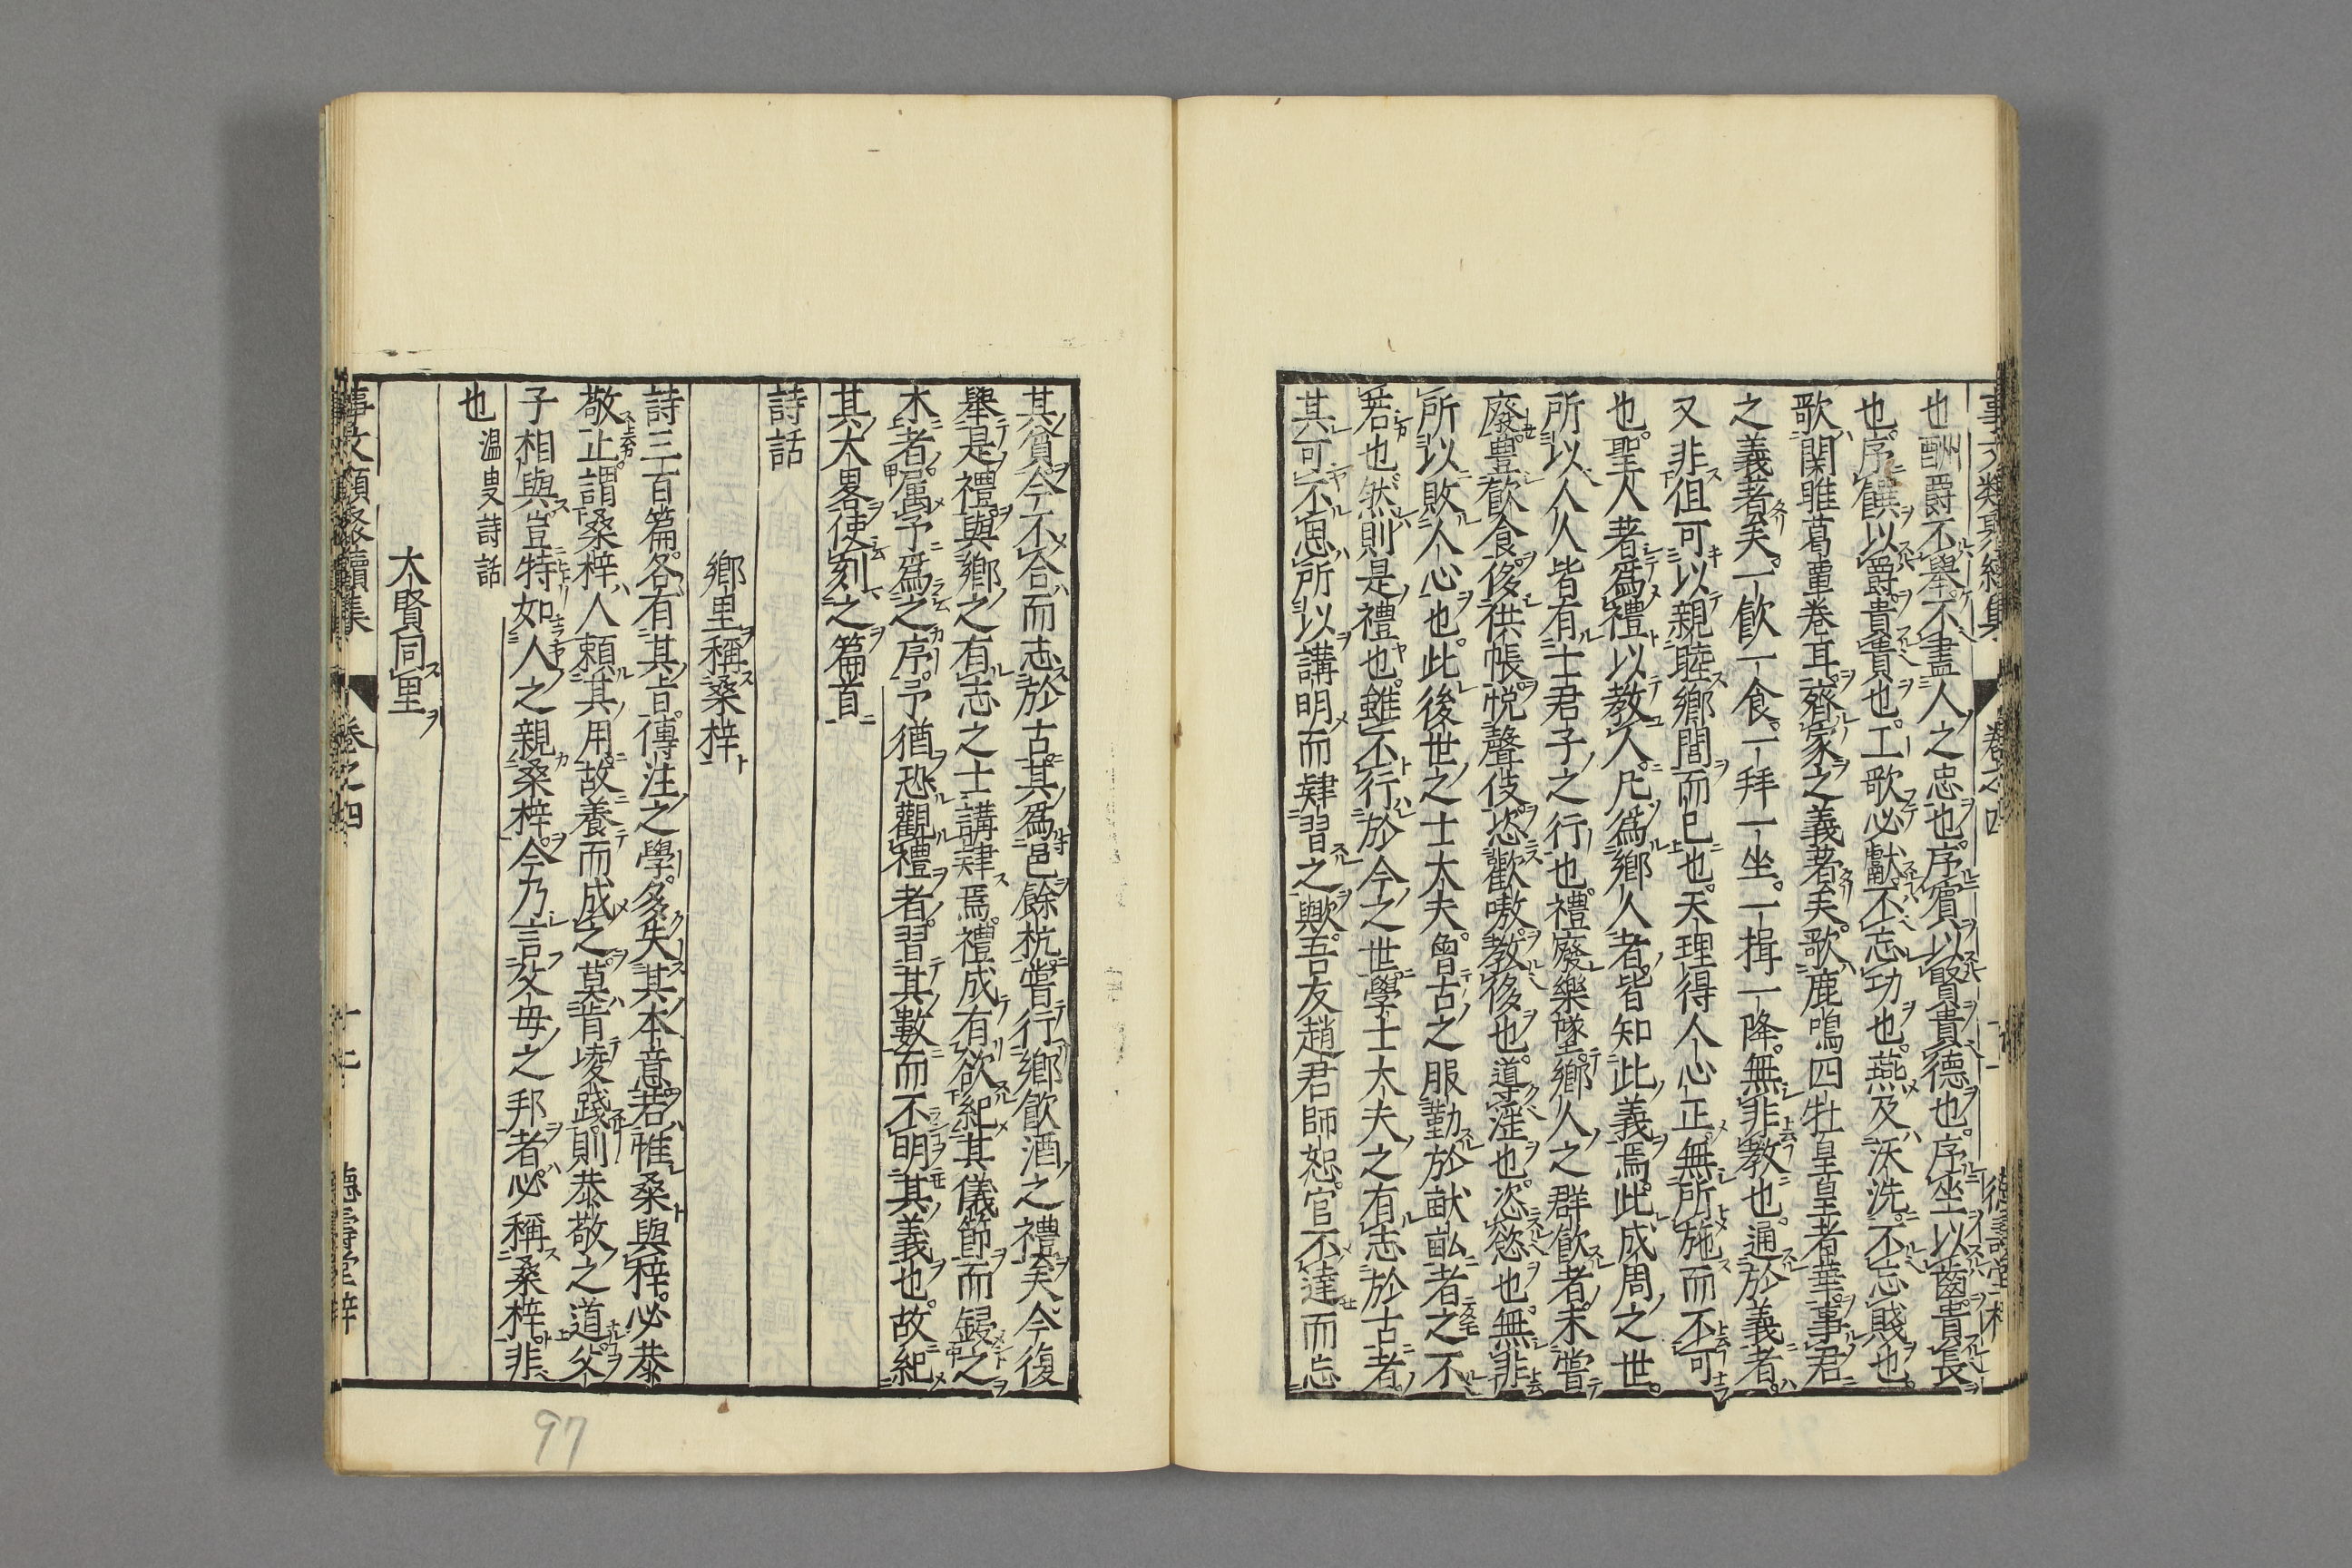 也酬爵不舉不盡人之忠也序賔以賢貴德也序坐以齒貴長
也序饌以爵貴貴也工歌必獻不忘功也燕及沃洗不忘賤也
歌關雎葛覃卷耳齊家之義著矣歌鹿鳴四牡皇皇者華事君
之義著矣一飲一食一拜一坐一揖一降無非教也通於義者
又非但可以親睦鄉閭而已也天理得人心正無所施而不可
也聖人著為禮以教人凡為鄉人者皆知此義焉此成周之世
所以人人皆有士君子之行也禮廢樂墜鄉人之群飲者未嘗
廢豊飲食侈供帳悅聲伎恣歡呶教侈也導淫也恣慾也無非
所以敗人心也此後世之士大夫曾古之服勤於畎畒者之不
若也然則是禮也雖不行於今之世學士大夫之有志於古者
其可不思所以講明而肄習之歟吾友趙君師恕官不達而忘
其貧今不合而志於古其為邑餘杭嘗行鄉飲酒之禮矣今復
舉是禮與鄉之有志之士講肄焉禮成有欲紀其儀節而錄之
木者属予為之序予猶恐觀禮者習其數而不明其義也故紀
其大畧使刻之篇首
詩話
鄉里稱桑梓
詩三百篇各有其㫖傳注之學多失其本意若惟桑與梓必恭
敬止謂桑梓人頼其用故養而成之莫肯凌踐則恭敬之道父
子相與豈特如人之親桑梓今乃言父母之邦者必稱桑梓非
也 温叟詩話
大賢同里
事文類聚續集 卷之四 十七